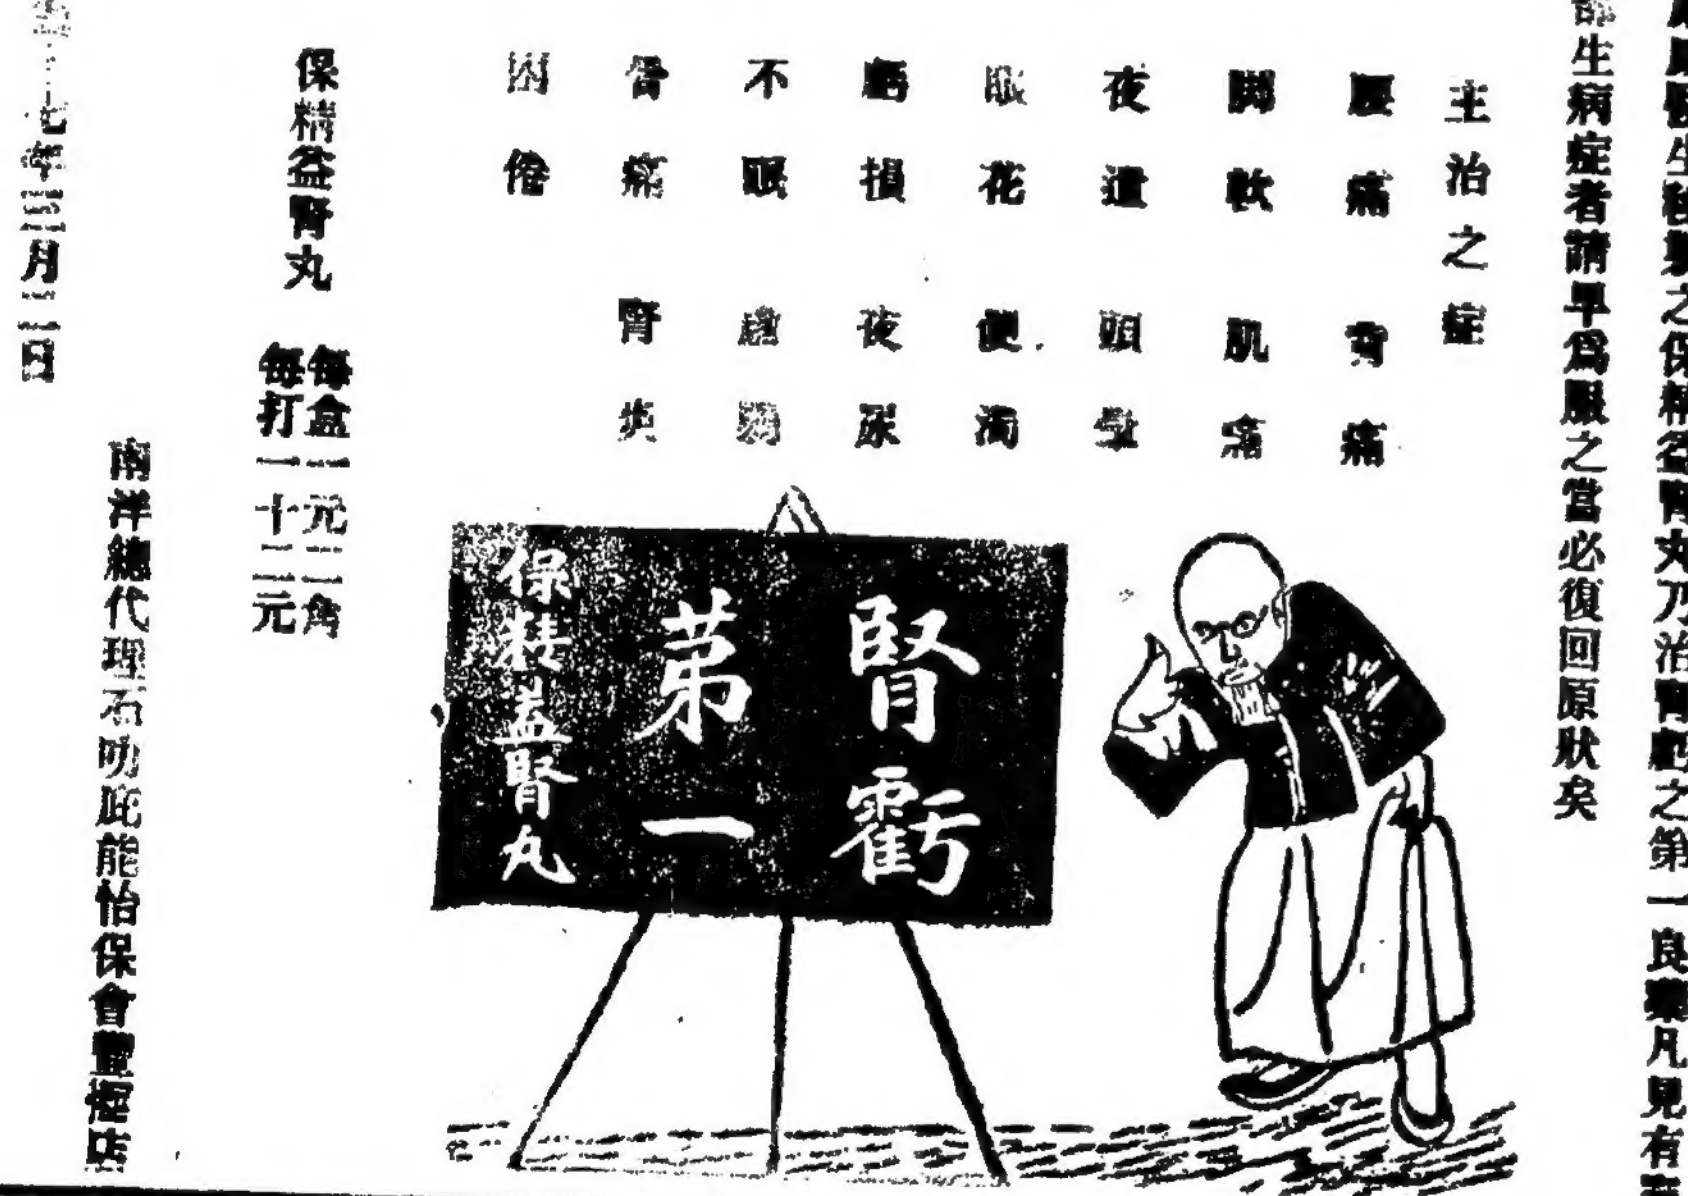 醫生經驗之保精益腎丸乃治腎虧之第一良藥凡見有
生病症者請早爲服之當必復回原狀矣
主治之症
腰痛 背痛
脚軟 肌痛
夜遺 頭暈
眼花 便濁
虧損 夜尿
不眠
骨痛 腎炎
困倦
腎虧
苐一
保精益腎丸
保精益腎丸
每盒一元二角
每打一十二元
南洋總代理石叻庇能怡保會豐
年四月二日